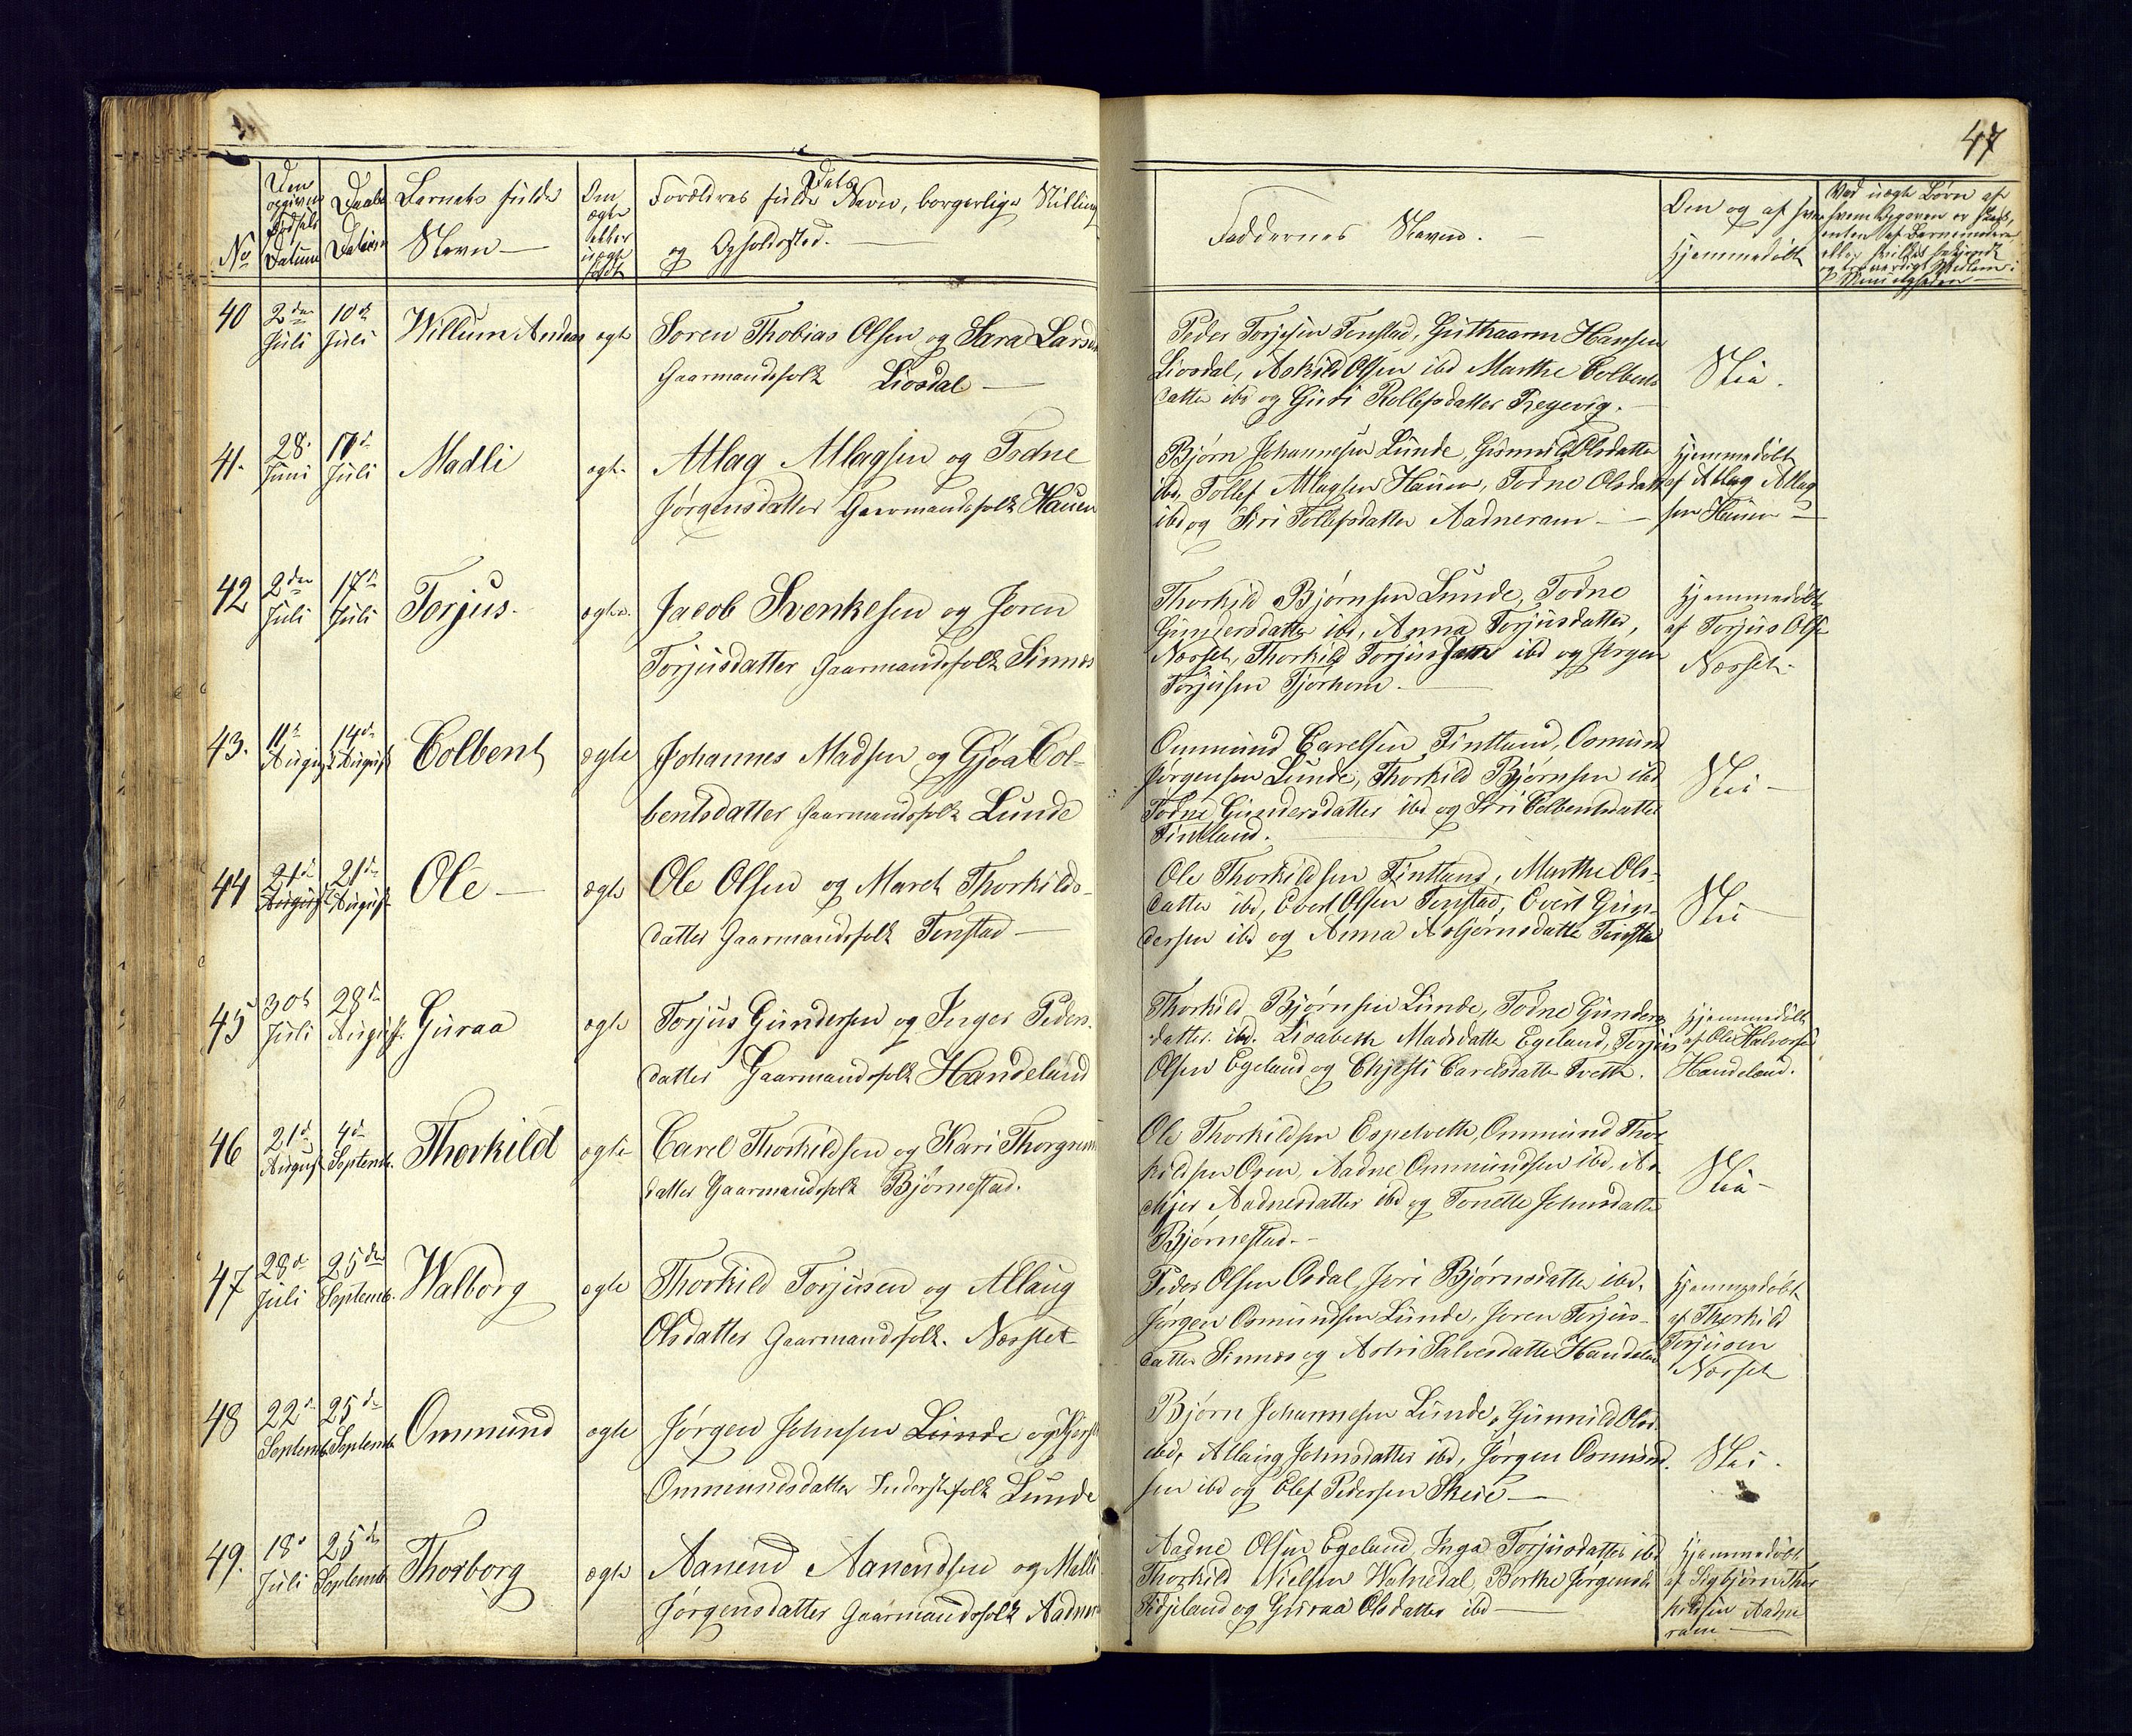 47
No
Den opgivne Fødsels Datum
Daabs Datum
Barnets fulde Navn
Om ægte eller uægte født
Forældres fulde Navn, borgerlige Stilling
og Opholdssted.
Faddernes Navne.
Om og af hvem
Hjemmedøbt
40 2den Juli 10de Juli Willum Andreas ægte Søren Thobias Olsen og Sara Lars
Gaarmandsfolk Liosdal
Peder Torjesen Tonstad, Guthaarm Hansen
Liosdal, Askild Olsen ibd Marthe Colbents
datter ibd og Guri Rollefsdatter Tregevig.
Nei.
41. 28. Juni 17d Juli Madli ægte Atlag Atlagsen og Todne
Jørgensdatter Gaarmandsfolk Hauen
Bjørn Johannesen Lunde, Gunnild Olsdatter
ibd, Tollef Atlagsen Hauen, Todne Olsdatter
ibd og Siri Tollefsdatter Aadneram
Hjemmedøbt
af Atlag Atlag
sen Hauen
42 2den Juli 17d Juli Torjus. ægte. Jacob Svenkesen og Joren
Torjusdatter Gaarmandsfolk Sinnes
Thorkild Bjørnsen Lunde, Todne
Gundersdatter ibd, Anna Torjusdatter,
Nesset, Thorkild Torjussen ibd og Jørgen
Torjusen Tjørhom.
Hjemmedøbt
af Torjus Olsen
Nesset.
43. 11d August 14d August Colbent ægte Johannes Madsen og Gjøa Col-
bentsdatter Gaarmandsfolk Lunde
Ommund Carelsen Fintland, Osmund
Jørgensen Lunde, Thorkild Bjørnsen ibd
Todne Gundersdatter ibd og Siri Colbentsdatter
Fintland.
Nei
44 21d August 21d August Ole ægte Ole Olsen og Maret Thorkilds-
datter Gaarmandsfolk Tonstad
Ole Thorkildsen Fintland, Marthe Ols-
datter ibd, Evert Olsen Tonstad, Evert Gun-
dersen ibd og Anna Asbjørnsdatter Tonstad
Nei
45 30t Juli 28d August Guraa ægte Torjus Gundersen og Inger Peders-
datter Gaarmandsfolk Handeland
Thorkild Bjørnsen Lunde, Todne Gunders
datter ibd. Lisabeth Madsdatter Egeland, Torjus
Olsen Egeland og Chjesti Carelsdatter Tveth.
Hjemmedøbt
af Ole Halvorsen
Handeland.
46 21d August 4d Septemb. Thorkild ægte Carel Thorkildsen og Kari Thorgrims
datter Gaarmandsfolk Bjørnestad.
Ole Thorkildsen Espetveth, Ommund Thor
kildsen Osen, Aadne Ommundsen ibd, As
chjer Aadnesdatter ibd og Tonette Johnsdatter
Bjørnestad.
Nei
47 28d Juli 25de Septemb. Walborg ægte Thorkild Torjusen og Allaug
Olsdatter Gaarmandsfolk. Nesset
Peder Olsen Osdal, Jori Bjørnsdatter ibd.
Jørgen Osmundsen Lunde, Joren Torjus-
datter Sinnes og Astri Salvesdatter Handeland
Hjemmedøbt
af Thorkild
Torjusen
Nesset
48 22d Septemb. 25d Septemb. Ommund ægte Jørgen Johnsen Lunde og
Ommundsdatter Inderstfolk Lunde
Bjørn Johannesen Lunde, Gunnild Olsd.
ibd, Allaug Johnsdatter ibd, Jørgen Osmund-
sen ibd og Elef Pedersen Skeie
Nei.
49. 18d Juli 25de Septemb Thorborg ægte Aanend Aanendsen og Malli
Jørgensdatter Gaarmandsfolk Aadner
Aadne Olsen Egeland, Inga Torjusdatter ibd
Thorkild Nielsen Watnedal, Berthe Jørgensd.
Fidjeland og Guraa Olsdatter ibd
Hjemmedøbt
af Sigbjørn Thor
kildsen Aadne
ram